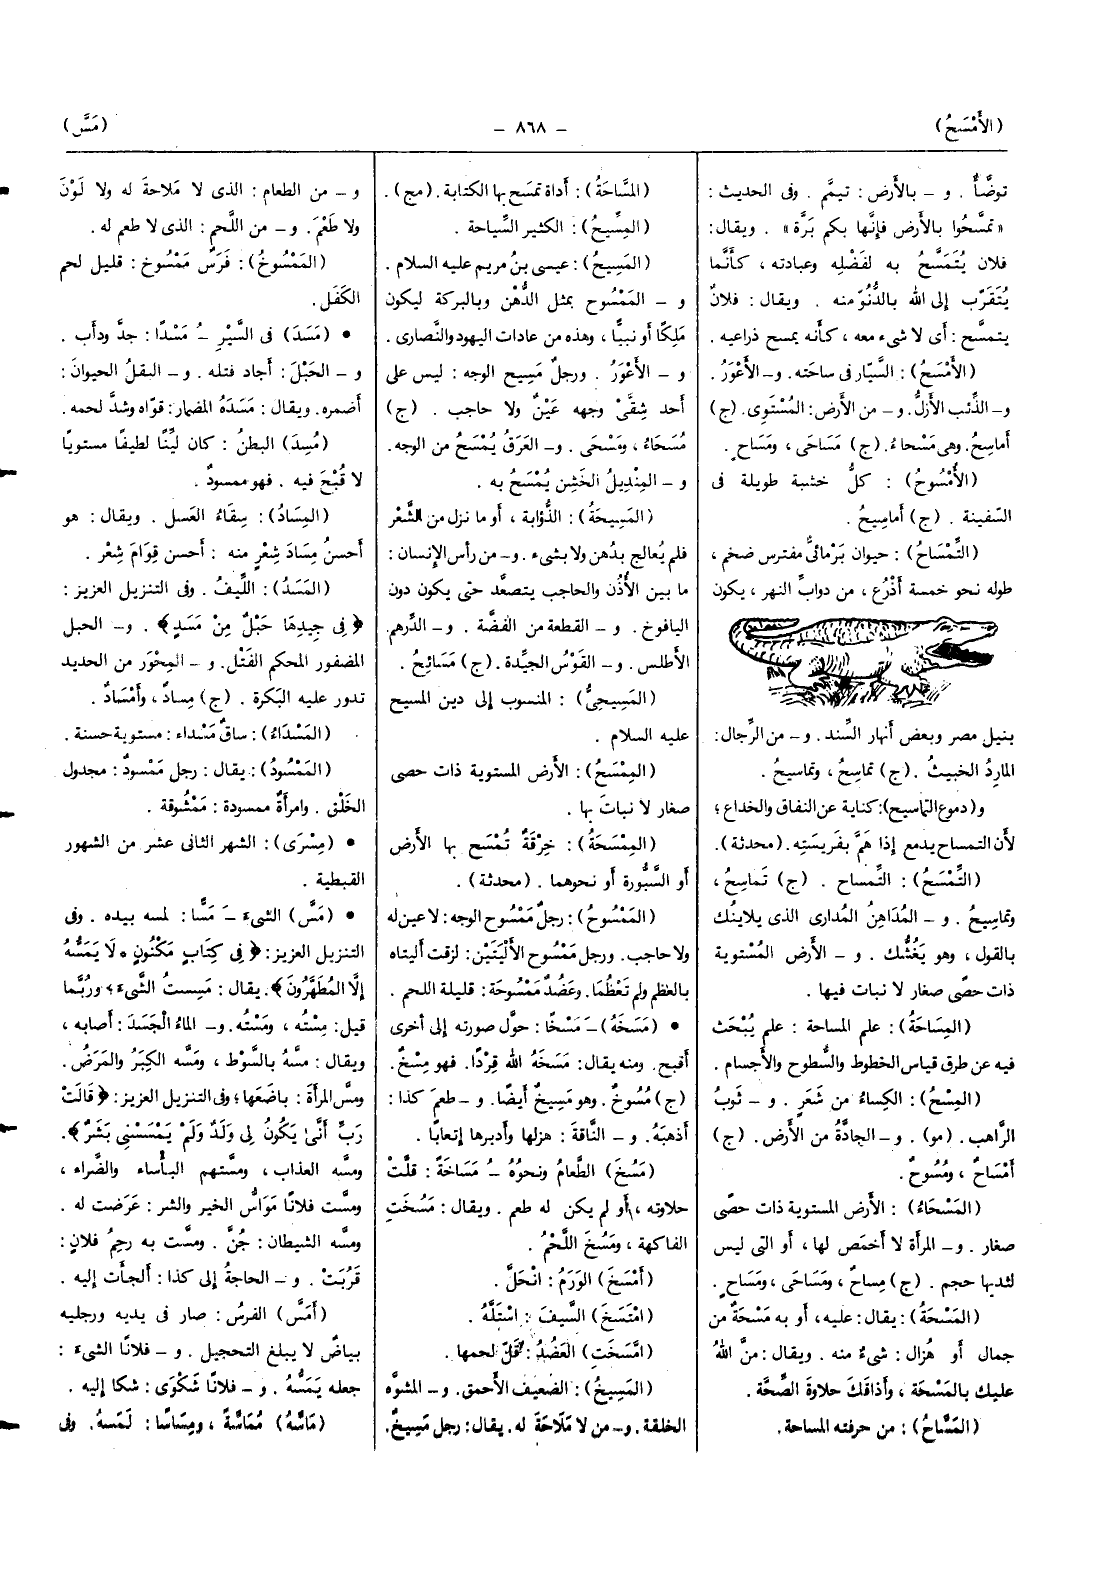 (الأَمْسَحُ)
– ٨٦٨ –
(مَسَّ)
توضَّأ . و – بالأَرض : تيمَّم . وفى الحديث :
« تمسَّحُوا بالأَرض فإِنَّها بكم بَرَّة » . ويقال :
فلان يُتَمَسَّحُ به لفَضْلِه وعبادته ، كأَنَّما
يُتَقَرّب إلى الله بالدُّنُوّ منه . ويقال : فلانٌ
يتمسح : أَى لا شىء معه ، كأَنه يمسح ذراعيه .
(الأَمْسَحُ) : السَّيّار فى ساحَته . و– الأَعْوَرُ .
و– الذِّئب الأَزلُّ . و – من الأَرض : المُسْتَوِى . (ج)
أَماسِحُ . وهى مَسْحاءُ . (ج) مَسَاحَى ، ومَسَاحٍ .
(الأُمْسُوحُ) : كلُّ خشبة طويلة فى
السّفينة . (ج) أَماسِيحُ .
(التِّمْسَاحُ) : حيوان بَرْمائىٌّ مفترس ضخم ،
طوله نحو خمسة أَذْرُع ، من دوابِّ النهر ، يكون
بنيل مصر وبعض أنهار السِّند . و – من الرِّجال :
المارِدُ الخبيثُ . (ج) تماسِحُ ، وتماسيحُ .
و(دموع التماسيح) : كناية عن النفاق والخداع ؛
لأَن التمساح يدمع إذا هَمَّ بفَرِيسَتِه . (محدثة) .
(التِّمْسَحُ) : التِّمساح . (ج) تَماسِحُ ،
وتماسيحُ . و – المُدَاهِنُ المُدارى الذى يلاينُك
بالقول ، وهو يَغُشُّك . و – الأَرض المُسْتَوية
ذات حصًى صغار لا نبات فيها .
(المِسَاحَةُ) : علم المساحة : علم يُبْحَث
فيه عن طرق قياس الخطوط والسُّطوح والأَجسام .
(المِسْحُ) : الكِساءُ من شَعَرٍ . و – ثَوبُ
الرَّاهب . (مو) . و – الجادَّةُ من الأَرض . (ج)
أَمْسَاحٌ ، ومُسُوحٌ .
(المَسْحَاءُ) : الأَرض المستوية ذات حصًى
صغار . و– المرأَة لا أَخمَص لها ، أَو التى ليس
لثديها حجم . (ج) مِساحٌ ، ومَسَاحَى ، ومَسَاحٍ .
(المَسْحَةُ) : يقال : عليه ، أَو به مَسْحَةٌ من
جمال أَو هُزال : شىءٌ منه . ويقال : منَّ اللهُ
عليك بالمَسْحَة ، وأَذاقَكَ حلاوة الصِّحَّة .
(المَسَّاحُ) : من حرفته المساحة .
(المَسَّاحَةُ) : أَداة تمسَح بها الكتابة . (مج) .
(المِسِّيحُ) : الكثير السِّياحة .
(المَسِيحُ) : عيسى بنُ مريم عليه السلام .
و – المَمْسُوح بمثل الدُّهْن وبالبركة ليكون
مَلِكًا أَو نبيًّا ، وهذه من عادات اليهود والنَّصارى .
و – الأَعْوَرُ . ورجلٌ مَسِيح الوجه : ليس على
أَحد شِقَّىْ وجهه عَيْنٌ ولا حاجب . (ج)
مُسَحَاءُ ، ومَسْحَى . و– العَرَقُ يُمْسَحُ من الوجه .
و – المِنْدِيلُ الخَشِن يُمْسَحُ به .
(المَسِيحَةُ) : الذُّؤابة ، أَو ما نزل من الشَّعْر
فلم يُعالج بدُهن ولا بشىء . و– من رأس الإِنسان :
ما بين الأُذُن والحاجب يتصعَّد حتى يكون دون
اليافوخ . و – القطعة من الفضَّة . و– الدِّرهم
الأَطلس . و– القَوْسُ الجيِّدة . (ج) مَسَائِحُ .
(المَسِيحِىُّ) : المنسوب إلى دين المسيح
عليه السلام .
(المِمْسَحُ) : الأَرض المستوية ذات حصى
صغار لا نباتَ بها .
(المِمْسَحَةُ) : خِرْقَةٌ تُمْسَح بها الأَرض
أَو السَّبُّورة أَو نحوهما . (محدثة) .
(المَمْسُوحُ) : رجلٌ مَمْسُوح الوجه : لا عين له
ولا حاجب . ورجل مَمْسُوح الأَلْيَتَيْن : لزقت أَليتاه
بالعظم ولم تَعْظُمَا . وعَضُدٌ مَمْسُوحَة : قليلة اللحم .
• (مَسَخَهُ) –َ مَسْخًا : حوّل صورته إلى أُخرى
أَقبح . ومنه يقال : مَسَخَهُ الله قِرْدًا . فهو مِسْخٌ .
(ج) مُسُوخٌ . وهو مَسِيخٌ أَيضًا . و – طعمَ كذا :
أَذهبَهُ . و – النَّاقةَ : هزلها وأَدبرها إتعابًا .
(مَسُخَ) الطَّعامُ ونحوُهُ –ُ مَسَاخَةً : قلَّتْ
حلاوته ، أَو لم يكن له طعم . ويقال : مَسُخَتِ
الفاكهة ، ومَسُخَ اللَّحْمُ .
(أَمْسَخَ) الوَرَمُ : انْحَلَّ .
(امْتَسَخَ) السَّيفَ : اسْتَلَّهُ .
(امَّسَخَتِ) العَضُدُ : قلّ لحمها .
(المَسِيخُ) : الضعيف الأَحمق . و– المشوَّه
الخلقة . و– من لا مَلَاحَةَ له . يقال : رجل مَسِيخٌ .
و – من الطعام : الذى لا مَلاحةَ له ولا لَوْنَ
ولا طَعْمَ . و– من اللَّحم : الذى لا طعم له .
(المَمْسُوخُ) : فَرَسٌ مَمْسُوخ : قليل لحم
الكَفَل .
• (مَسَدَ) فى السَّيْرِ –ُ مَسْدًا : جدَّ ودأَب .
و – الحَبْلَ : أَجاد فتله . و– البقلُ الحيوانَ :
أَضمره . ويقال : مَسَدَهُ المضمار : قوّاه وشدَّ لحمه .
(مُسِدَ) البطنُ : كان ليِّنًا لطيفًا مستويًا
لا قُبْحَ فيه . فهو ممسودٌ .
(المِسَادُ) : سِقَاءُ العَسل . ويقال : هو
أَحسنُ مِسَادَ شِعْرٍ منه : أَحسن قِوَامَ شِعْر .
(المَسَدُ) : اللِّيفُ . وفى التنزيل العزيز :
﴿ فِى جِيدِهَا حَبْلٌ مِنْ مَسَدٍ ﴾ . و– الحبل
المضفور المحكم الفَتْل . و – المِحْوَر من الحديد
تدور عليه البَكرة . (ج) مِسادٌ ، وأَمْسَادٌ .
(المَسْدَاءُ) : ساقٌ مَسْداء : مستوية حسنة .
(المَمْسُودُ) : يقال : رجل مَمْسودٌ : مجدول
الخَلْق . وامرأَةٌ ممسودة : مَمْشُوقة .
• (مِسْرَى) : الشهر الثانى عشر من الشهور
القبطية .
• (مَسَّ) الشىءَ –َ مَسًّا : لمسه بيده . وفى
التنزيل العزيز : ﴿ فِى كِتَابٍ مَكْنُونٍ * لَا يَمَسُّهُ
إِلَّا المُطَهَّرُونَ ﴾ . يقال : مَسِستُ الشَّىءَ ؛ ورُبَّما
قيل : مِسْتُه ، ومَسْتُه . و– الماءُ الجَسَدَ : أَصابه ،
ويقال : مسَّهُ بالسَّوْط ، ومَسَّه الكِبَرُ والمَرَضُ .
ومسَّ المرأَةَ : باضَعَها ؛ وفى التنزيل العزيز : ﴿ قَالَتْ
رَبِّ أَنَّىٰ يَكُونُ لِى وَلَدٌ وَلَمْ يَمْسَسْنِى بَشَرٌ ﴾ .
ومسَّه العذاب ، ومسَّتهم البأْساء والضَّراء ،
ومسَّت فلانًا مَوَاسُّ الخير والشر : عَرَضت له .
ومسَّه الشيطان : جُنَّ . ومسَّت به رحِمُ فلانٍ :
قَرُبَتْ . و – الحاجةُ إلى كذا : أَلجأَت إليه .
(أَمَسَّ) الفرسُ : صار فى يديه ورجليه
بياضٌ لا يبلغ التحجيل . و – فلانًا الشىءَ :
جعله يَمَسُّهُ . و – فلانًا شَكْوَى : شكا إليه .
(مَاسَّهُ) مُمَاسَّةً ، ومِسَاسًا : لَمَسَهُ . وفى